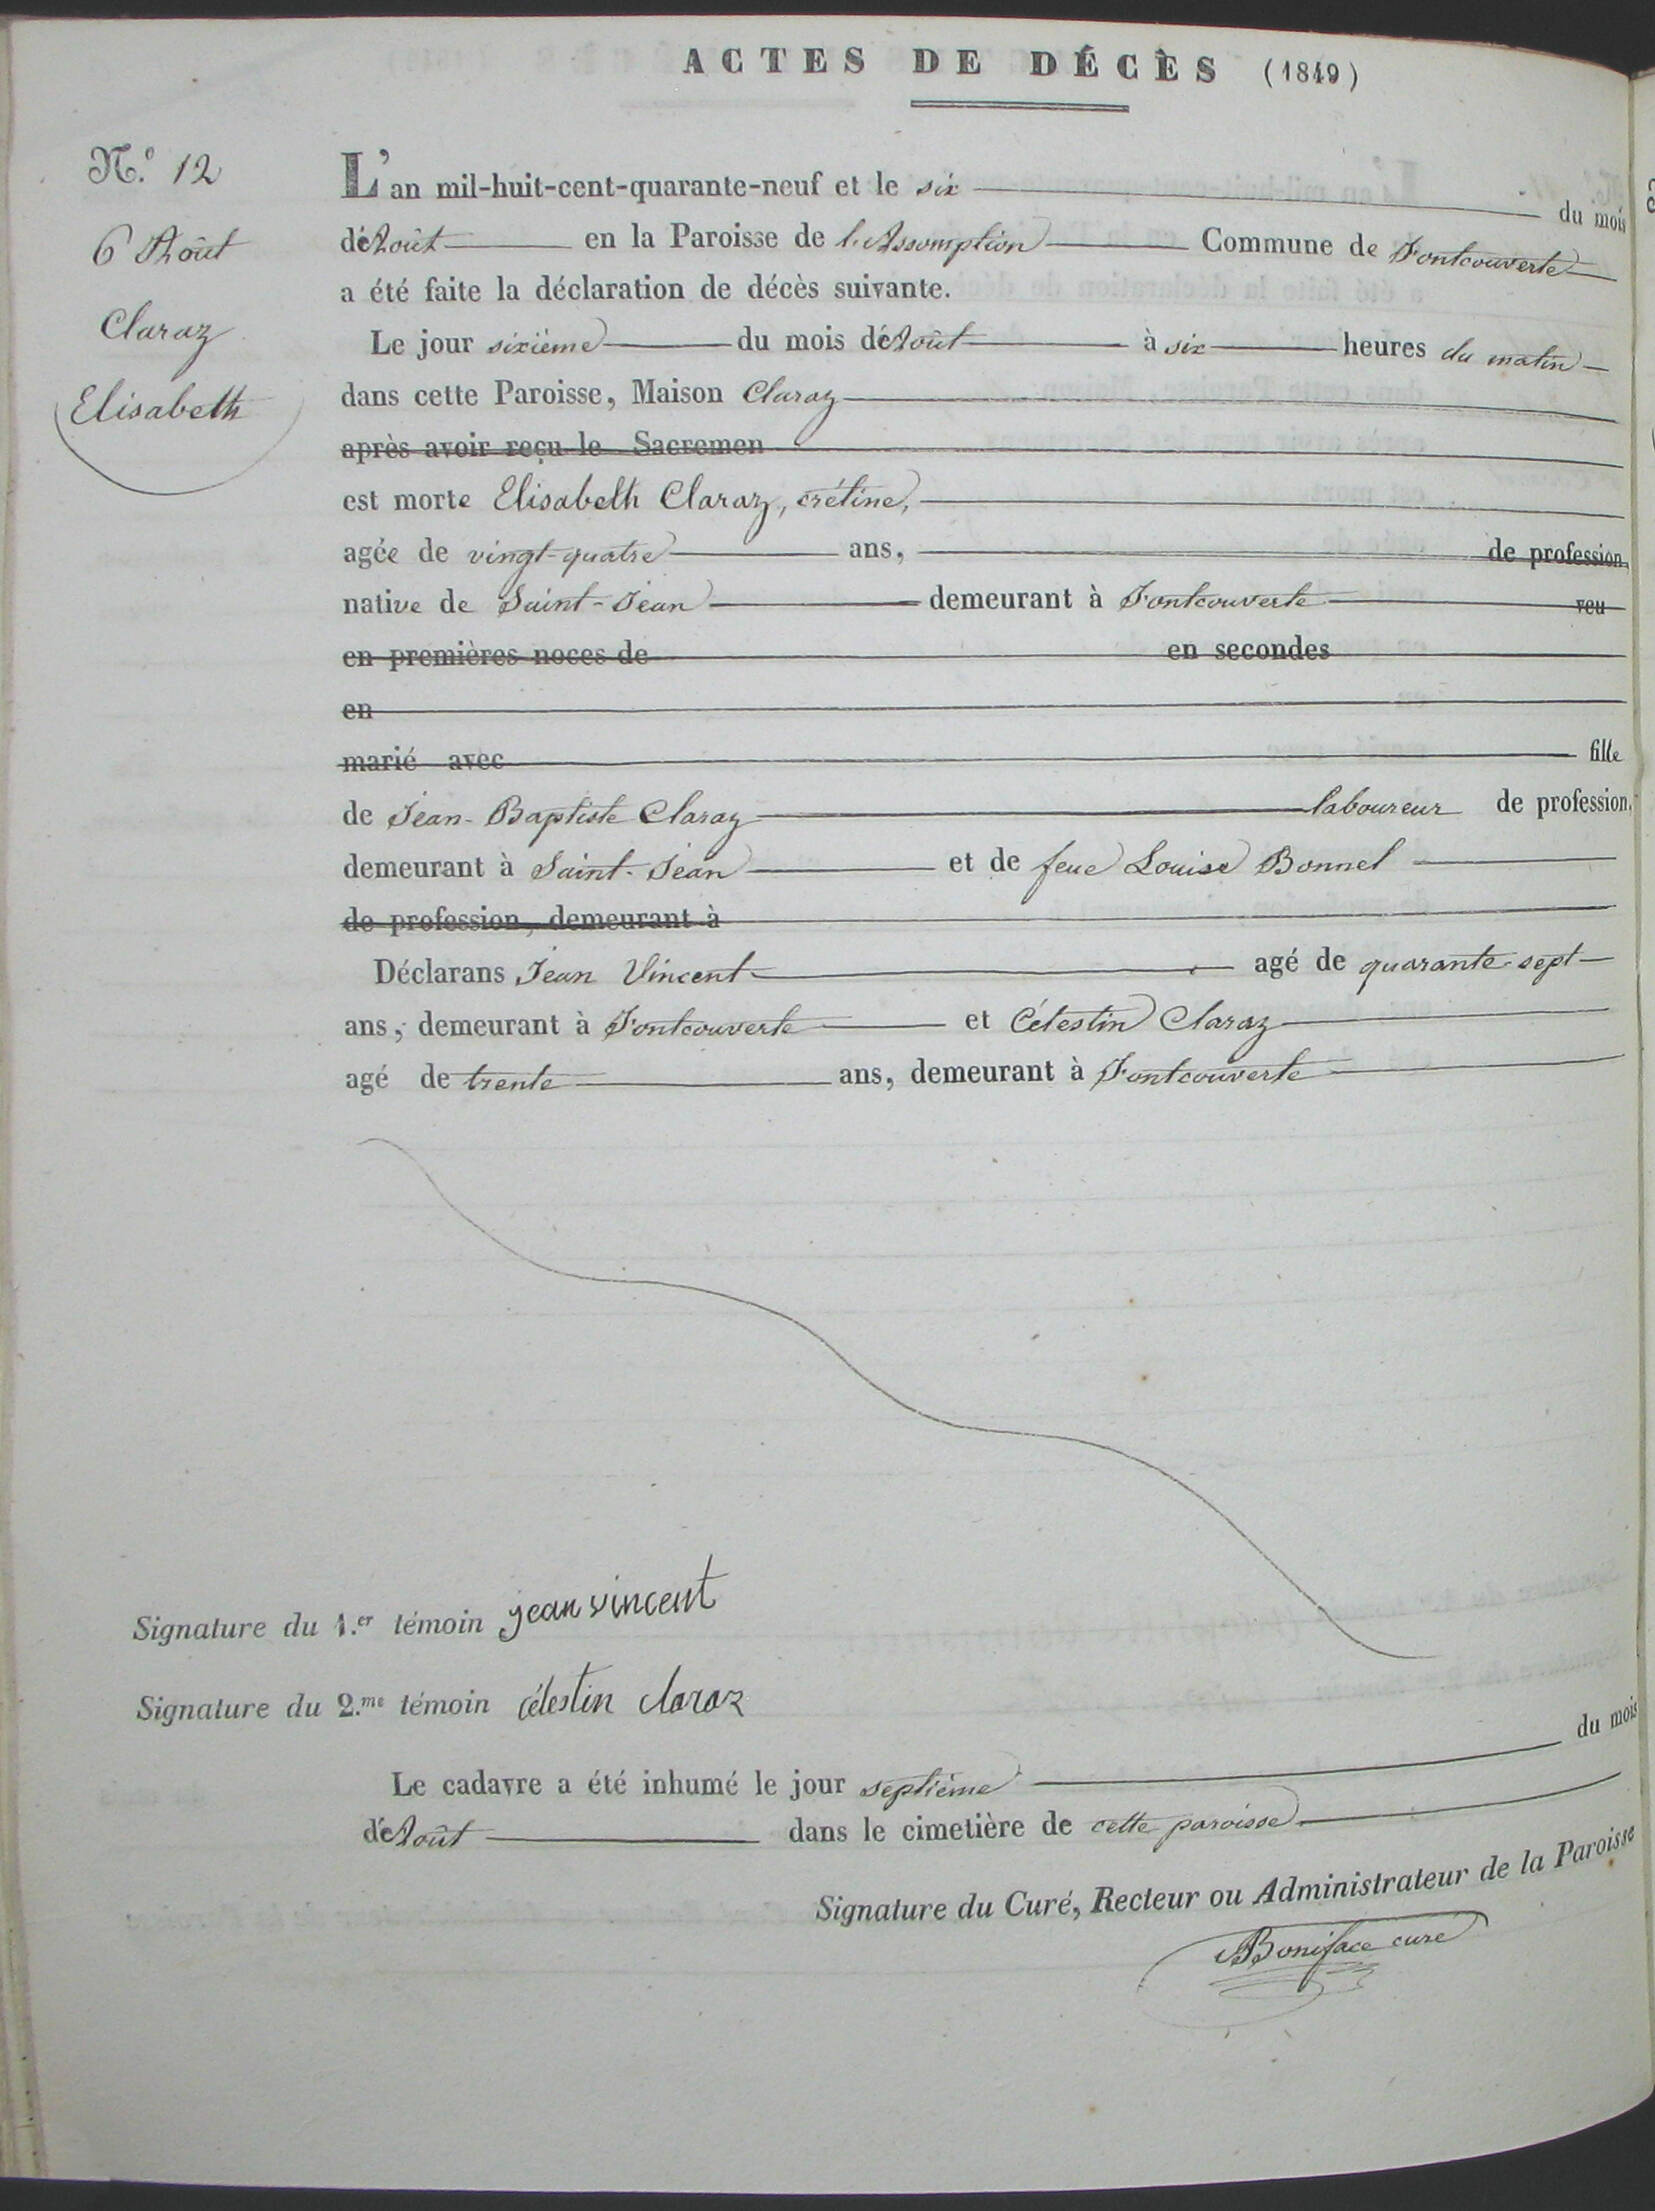 ACTES DE DÉCÈS (1849)
N.º 12
6 Août
Claraz
Elisabeth
L'an mil-huit-cent-quarante-neuf et le six du mois
d'Août en la Paroisse de l'Assomption Commune de Fontcouverte
a été faite la déclaration de décès suivante.
Le jour sixième du mois d'Août à six heures du matin
dans cette Paroisse, Maison Claraz
après avoir reçu le Sacremen
est morte Elisabeth Claraz, crétine,
agée de vingt-quatre ans, de profession,
native de Saint-Jean demeurant à Fontcouverte veu
en premières noces de en secondes
en
marié avec fille
de Jean-Baptiste Claraz laboureur de profession,
demeurant à Saint-Jean et de feue Louise Bonnel
de profession, demeurant à
Déclarans Jean Vincent agé de quarante-sept
ans, demeurant à Fontcouverte et Célestin Claraz
agé de trente ans, demeurant à Fontcouverte
Signature du 1.er témoin jean vincent
Signature du 2.me témoin célestin claraz
Le cadavre a été inhumé le jour septième du mois
d'Août dans le cimetière de cette paroisse
Signature du Curé, Recteur ou Administrateur de la Paroisse
Boniface curé